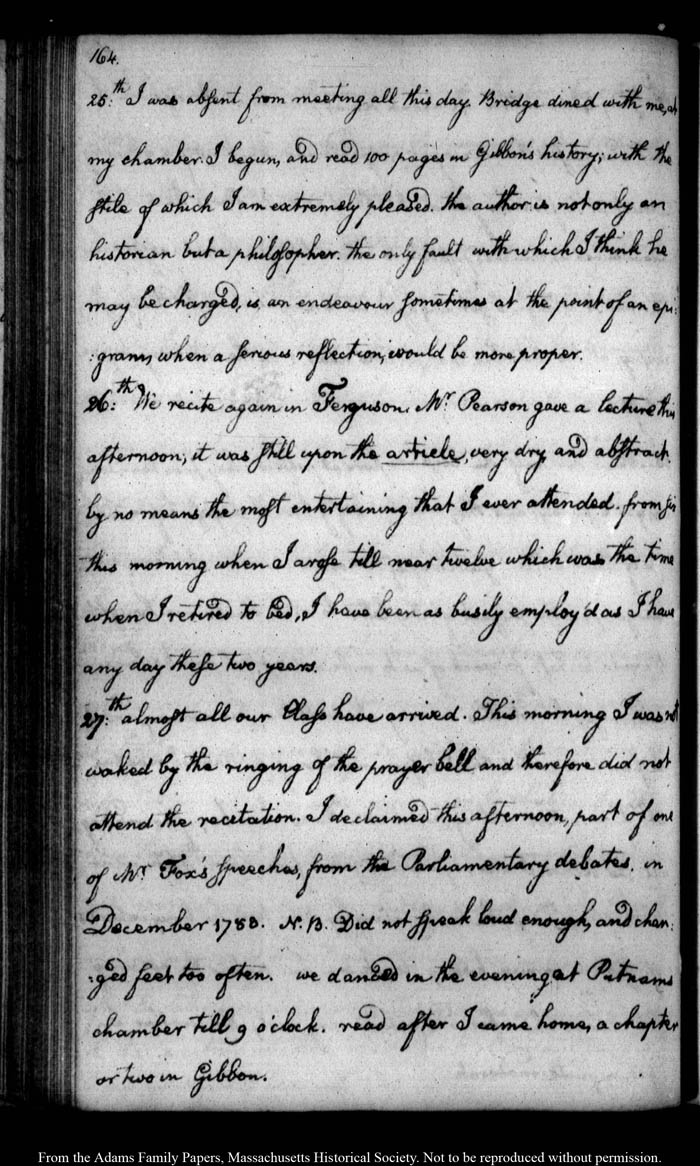 164.
25:th I was absent from meeting all this day. Bridge dined with me, at
my chamber. I begun, and read 100 pages in Gibbon's history; with the
stile of which I am extremely pleased. the author is not only an
historian but a philosopher. the only fault with which I think he
may be charged, is, an endeavour sometimes at the point of an epi:
:gram, when a serious reflection, would be more proper.
26:th We recite again in Ferguson. Mr. Pearson gave a lecture this
afternoon; it was still upon the article, very dry, and abstract.
by no means the most entertaining that I ever attended. from six
this morning when I arose till near twelve which was the time
when I retired to bed, I have been as busily employ'd as I have
any day these two years.
27:th almost all our Class have arrived. This morning I was not
waked by the ringing of the prayer bell and therefore did not
attend the recitation. I declaimed this afternoon, part of one
of Mr Fox's speeches, from the Parliamentary debates, in
December 1783. N.B. Did not speak loud enough, and chan:
:ged feet too often. we danced in the evening at Putnams
chamber till 9 o'clock. read after I came home, a chapter
or two in Gibbon.
From the Adams Family Papers, Massachusetts Historical Society. Not to be reproduced without permission.